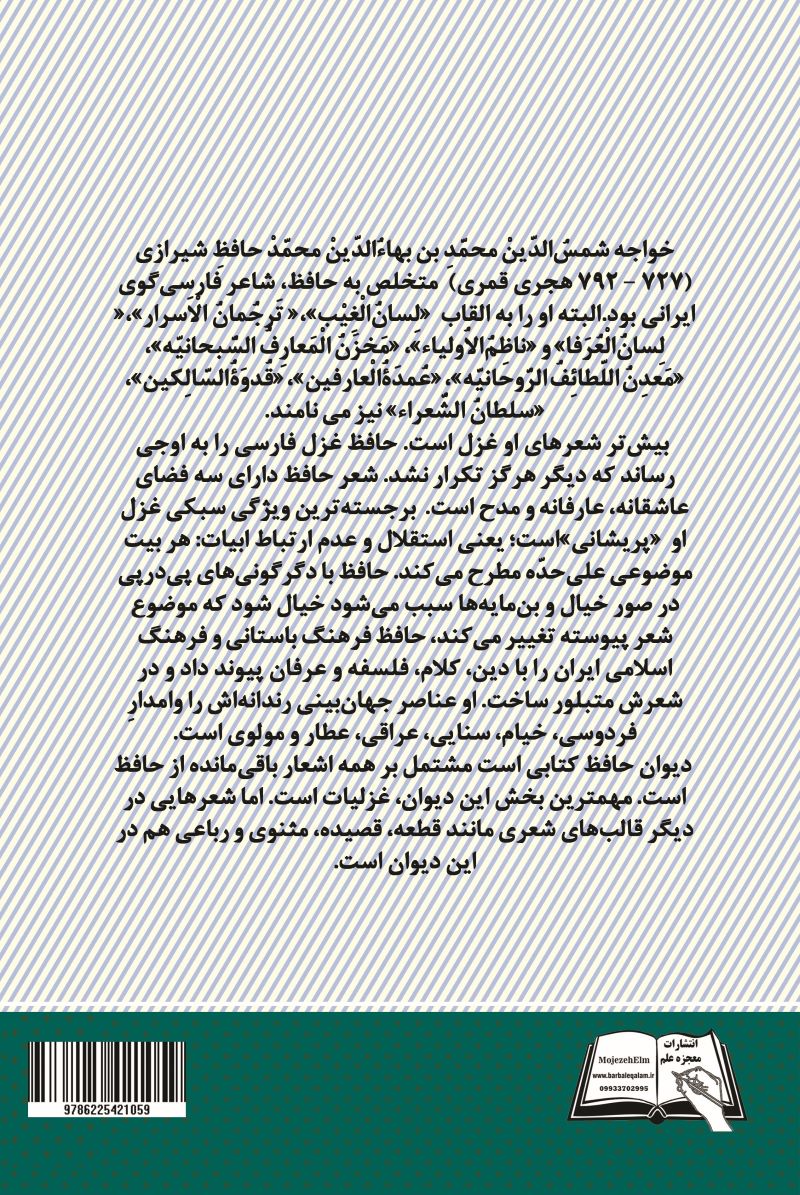 خواجه شمسُ‌الدّینْ محمّدِ بن بهاءُالدّینْ محمّدْ حافظِ شیرازی
(۷۲۷ – ۷۹۲ هجری قمری) متخلص به حافظ، شاعر فارسی‌گوی
ایرانی بود.البته او را به القاب «لِسانُ‌الْغیْب»،« تَرجُمانُ الْاَسرار»،«
لسانُ‌الْعُرَفا» و «ناظمُ‌الاُولیاء»، «مَخزَنُ الْمَعارِفُ السّبحانیّه»،
«مَعَدِنُ اللّطائِفُ الرّوحَانیّه»، «عُمدَةُالْعارفین»، «قُدوَةُالسّالِکین»،
«سلطانُ الشّعراء» نیز می نامند.
بیش‌تر شعرهای او غزل است. حافظ غزل فارسی را به اوجی
رساند که دیگر هرگز تکرار نشد. شعر حافظ دارای سه فضای
عاشقانه، عارفانه و مدح است. برجسته‌ترین ویژگی سبکی غزل
او «پریشانی»است؛ یعنی استقلال و عدم ارتباط ابیات: هر بیت
موضوعی علی‌حدّه مطرح می‌کند. حافظ با دگرگونی‌های پی‌درپی
در صور خیال و بن‌مایه‌ها سبب می‌شود خیال شود که موضوع
شعر پیوسته تغییر می‌کند، حافظ فرهنگ باستانی و فرهنگ
اسلامی ایران را با دین، کلام، فلسفه و عرفان پیوند داد و در
شعرش متبلور ساخت. او عناصر جهان‌بینی رندانه‌اش را وامدارِ
فردوسی، خیام، سنایی، عراقی، عطار و مولوی است.
دیوان حافظ کتابی است مشتمل بر همه اشعار باقی‌مانده از حافظ
است. مهمترین بخش این دیوان، غزلیات است. اما شعرهایی در
دیگر قالب‌های شعری مانند قطعه، قصیده، مثنوی و رباعی هم در
این دیوان است.
انتشارات
معجزه علم
MojezehElm
www.barbaleqalam.ir
09933702995
9786225421059